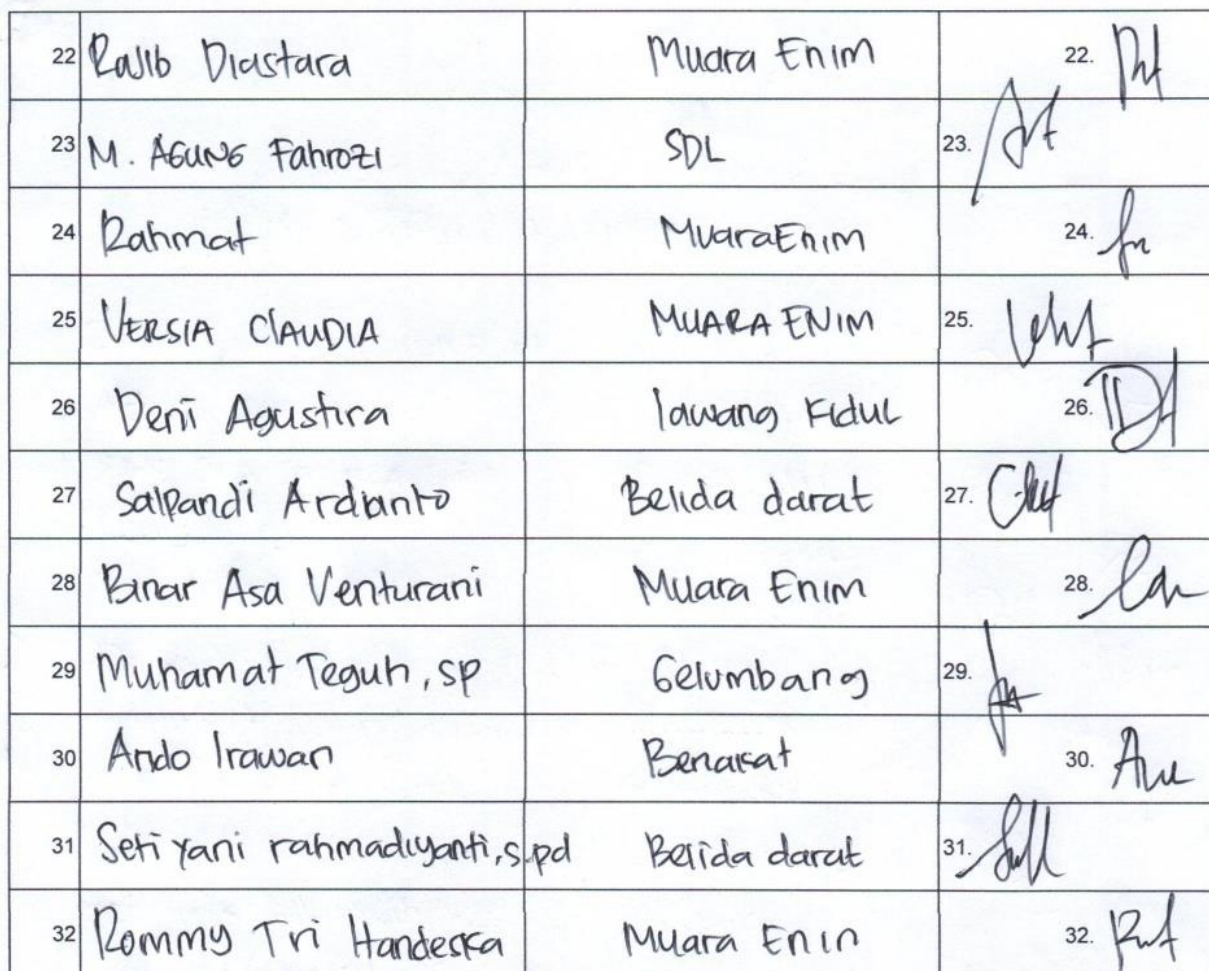 22 Rajib Diastara Muara Enim 22.
23 M. AGUNG Fahrozi SDL 23.
24 Rahmat Muara Enim 24.
25 VERSIA CLAUDIA MUARA ENIM 25.
26 Deni Agustira lawang Kidul 26.
27 Salpandi Ardianto Belida darat 27.
28 Binar Asa Venturani Muara Enim 28.
29 Muhamat Teguh, SP Gelumbang 29.
30 Ando Irawan Benakat 30.
31 Seti yani rahmadiyanti, s.pd Belida darat 31.
32 Rommy Tri Handeska Muara Enin 32.